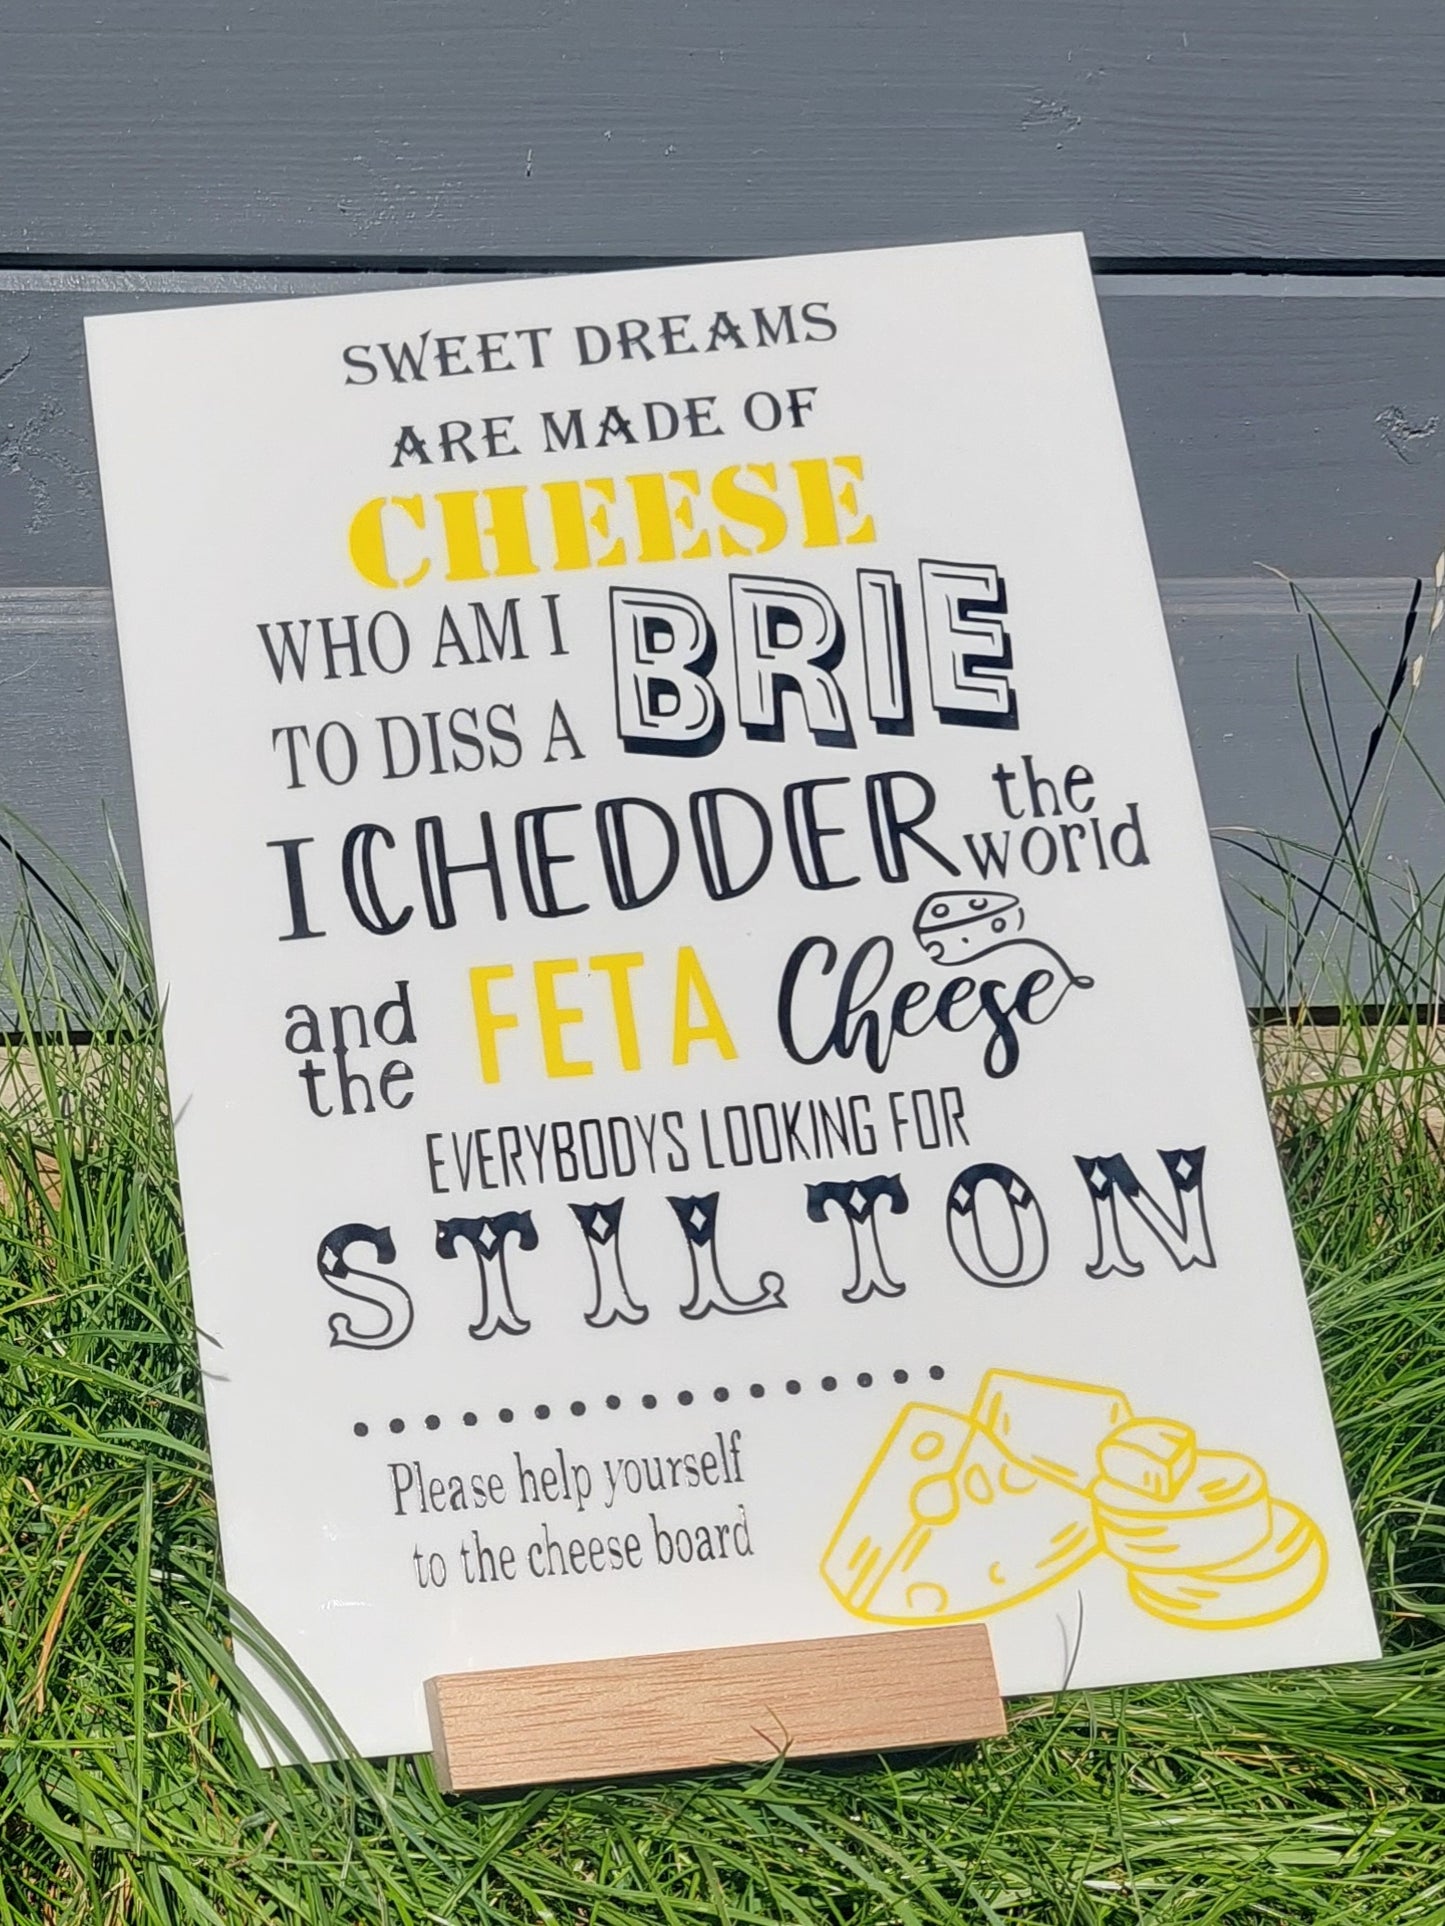 SWEET DREAMS
ARE MADE OF
CHEESE
WHO AM I
TO DISS A BRIE
I CHEDDER the world
and the FETA Cheese
EVERYBODYS LOOKING FOR
STILTON
Please help yourself
to the cheese board